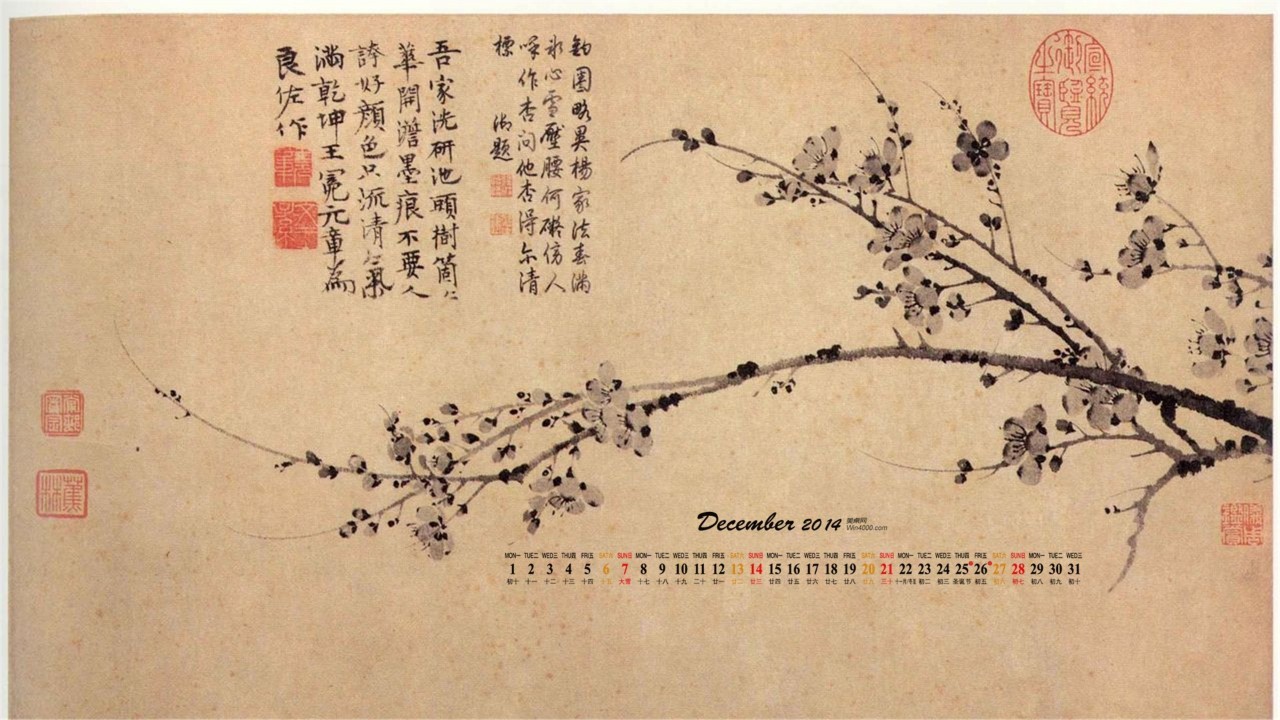 鈎圈略異楊家法春滿
冰心雪壓腰何礙傍人
呼作杏問他杏得尒清
標
御題
吾家洗研池頭樹箇〻
華開澹墨痕不要人
誇好顏色只流清〻氣
滿乾坤王冕元章為
良佐作
宣統
御覽
之寶
December 2014
Win4000.com
MON一 TUE二 WED三 THU四 FRI五 SAT六 SUN日 MON一 TUE二 WED三 THU四 FRI五 SAT六 SUN日 MON一 TUE二 WED三 THU四 FRI五 SAT六 SUN日 MON一 TUE二 WED三 THU四 FRI五 SAT六 SUN日 MON一 TUE二 WED三
1 2 3 4 5 6 7 8 9 10 11 12 13 14 15 16 17 18 19 20 21 22 23 24 25 26 27 28 29 30 31
初十 十一 十二 十三 十四 十五 大雪 十七 十八 十九 二十 廿一 廿二 廿三 廿四 廿五 廿六 廿七 廿八 廿九 三十 初二 初三 圣诞节 初五 初六 初七 初八 初九 初十